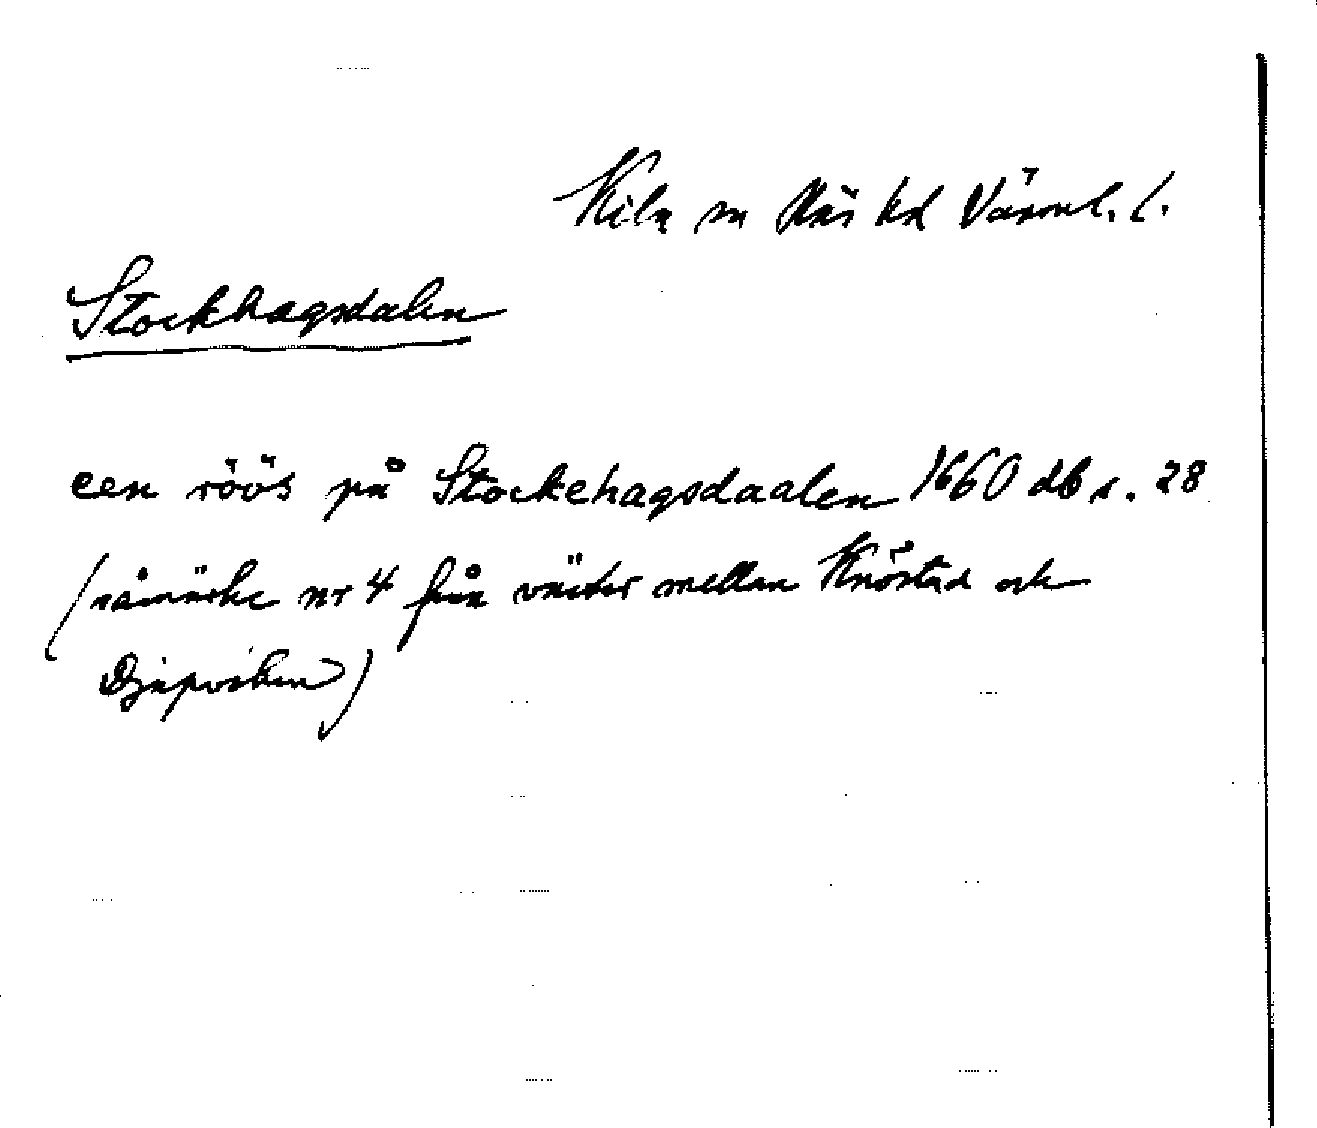 Kila sn Näs hd Värml. l.
Stockhagsdalen
een röös på Stockehagsdaalen 1660 db s. 28
(råmärke nr 4 från väster mellan Knöstad och
Djupviken)